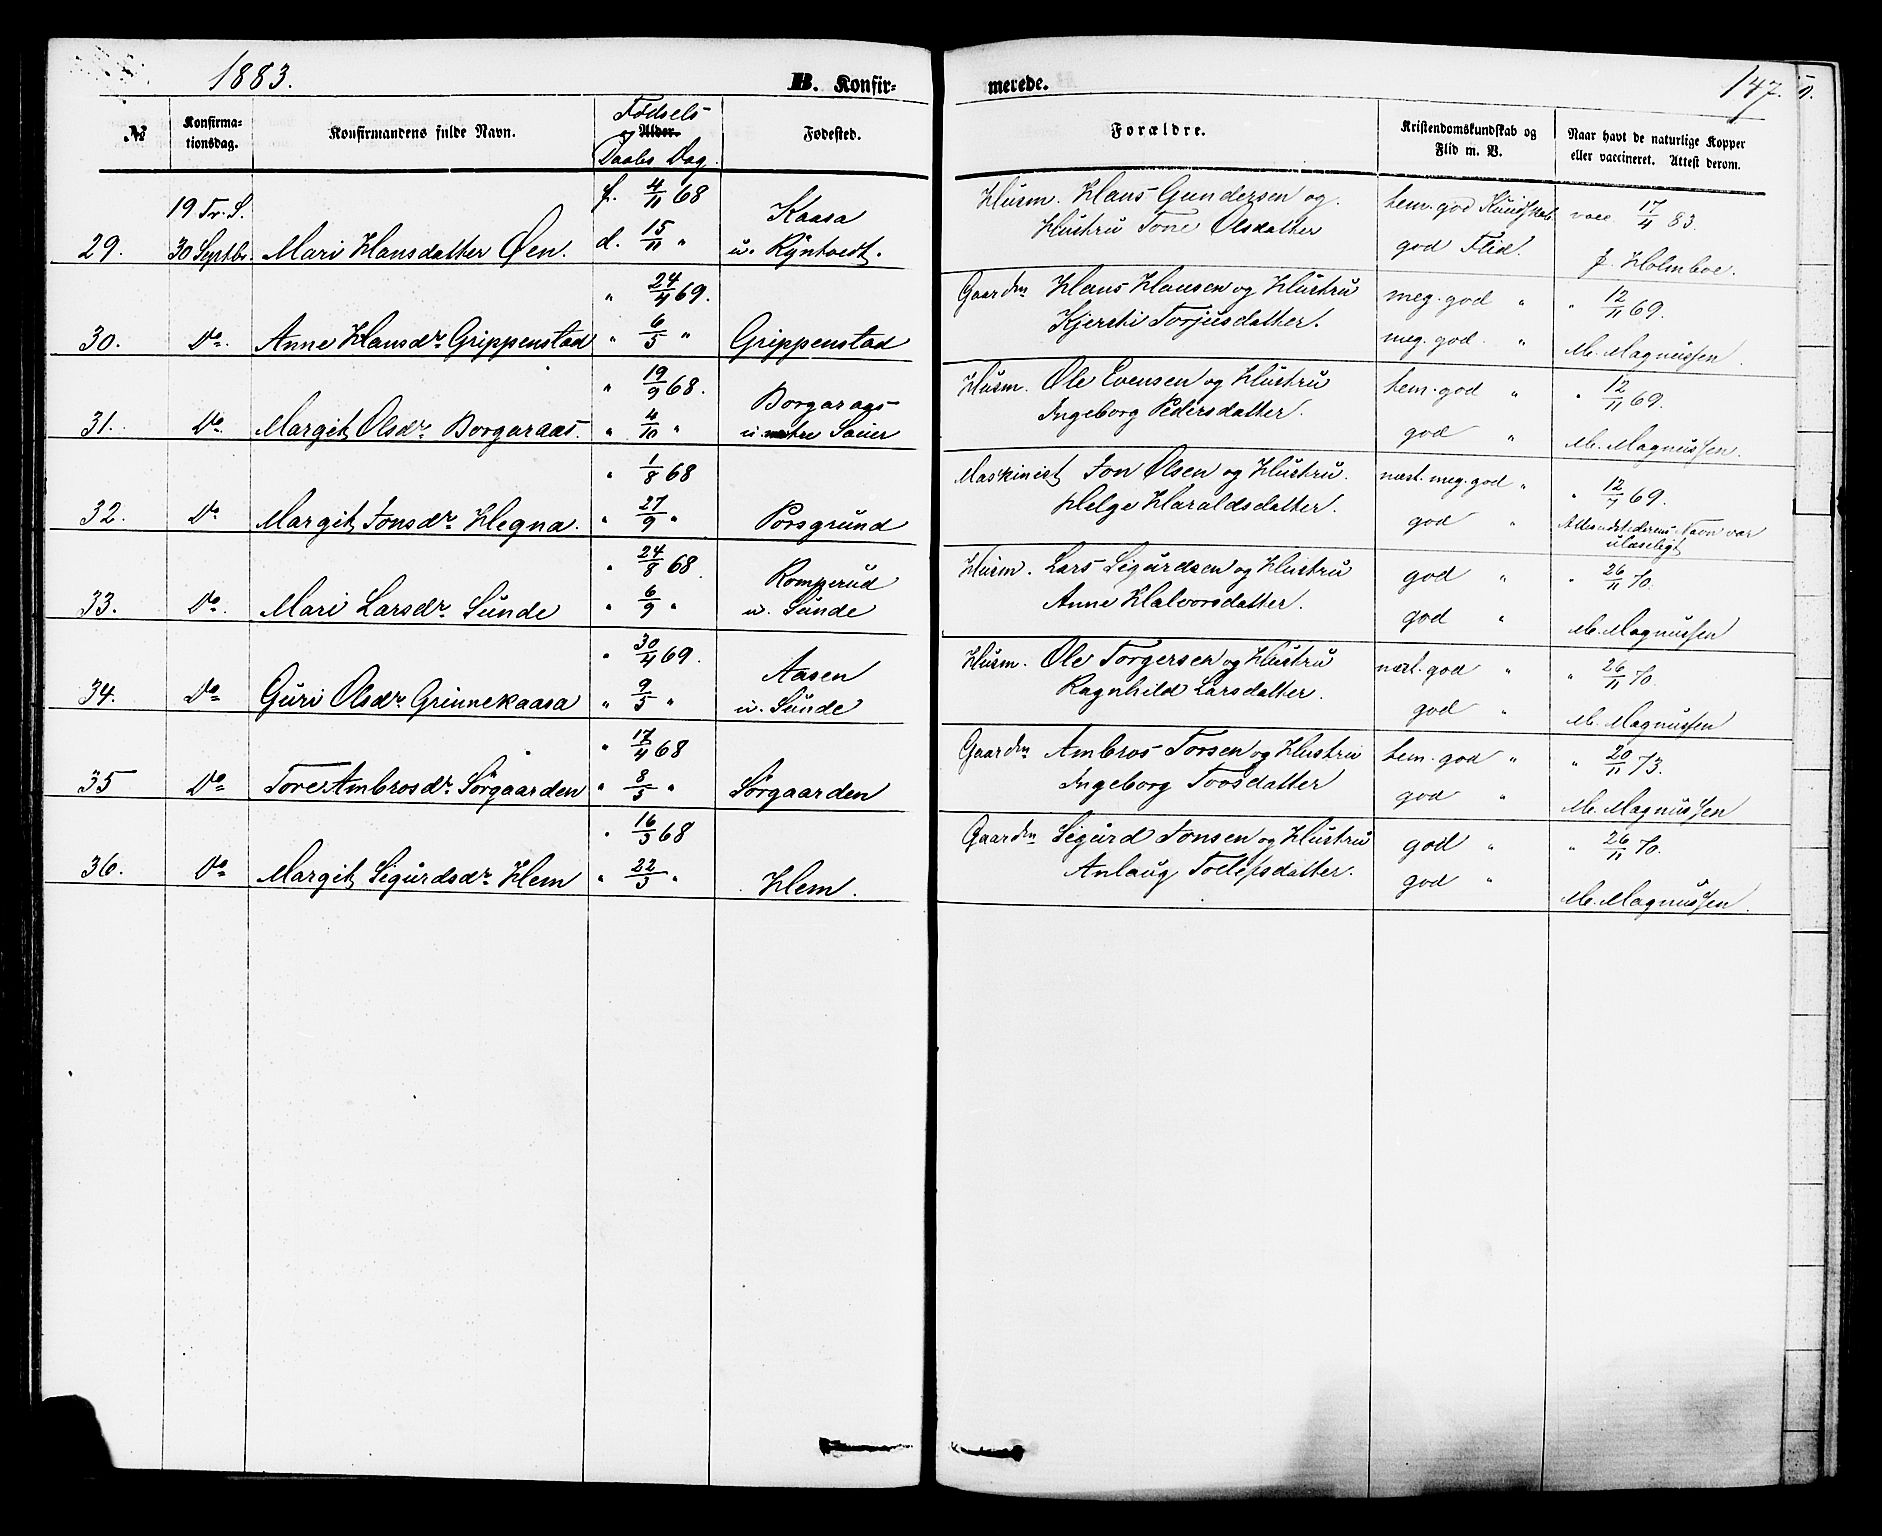 1883.
B. Konfir-
merede.
147.
№
Konfirma-
tionsdag.
Konfirmandens fulde Navn.
Fødsels
og Alder.
Daabs Dag.
Fødested.
Forældre.
Kristendomskundskab og
Flid m. V.
Naar havt de naturlige Kopper
eller vaccineret. Attest derom.
29.
19 Tr. S.
30 Septbr.
Mari Hansdatter Øen.
f. 4/11 68
d. 15/11 "
Kaasa
u. Ryntvedt.
Husm. Hans Gundersen og
Hustru Tone Olsdatter
tem. god Kundskab
god Flid.
vacc. 17/4 83.
J. Holmboe.
30.
Do.
Anne Hansdr. Grippenstad
" 24/4 69.
" 6/5 "
Grippenstad
Gaardm Hans Hansen og Hustru
Kjersti Torjusdatter.
meg. god "
meg. god. "
" 12/11 69.
M. Magnussen.
31.
Do.
Margit Olsdr. Borgaraas.
" 19/9 68.
" 4/10 "
Borgaraas
u. nstre Saeier
Husm. Ole Evensen og Hustru
Ingeborg Pedersdatter.
tem. god "
god "
" 12/11 69.
M. Magnussen.
32.
Do
Margit Jonsdr. Hegna.
" 1/8 68
" 27/9 "
Porsgrund
Maskinist Jon Olsen og Hustru.
Helge Haraldsdatter.
næst. meg. god "
god "
" 12/7 69.
Attestudstederens Navn var
ulæseligt
33.
Do.
Mari Larsdr. Sunde
" 24/8 68.
" 6/9 "
Romperud
u. Sunde
Husm. Lars Sigurdsen og Hustru
Anne Halvorsdatter.
god "
god "
" 26/11 70.
M. Magnussen
34.
Do
Guri Olsdr. Grinnekaasa
" 30/4 69.
" 9/5 "
Aasen
u. Sunde
Husm. Ole Torgersen og Hustru
Ragnhild Larsdatter.
næst. god "
god "
" 26/11 70.
M. Magnussen
35
Do
Tore Ambrosdr. Sørgaarden
" 17/4 68
" 8/5 "
Sørgaarden
Gaardm Ambros Torsen og Hustru
Ingeborg Torsdatter
tem. god "
god "
" 20/11 73.
M. Magnussen
36.
Do
Margit Sigurdsdr. Hem
" 16/3 68
" 22/3 "
Hem.
Gaardm Sigurd Jonsen og Hustru
Anlaug Tollefsdatter.
god "
god "
" 26/11 70.
M. Magnussen.